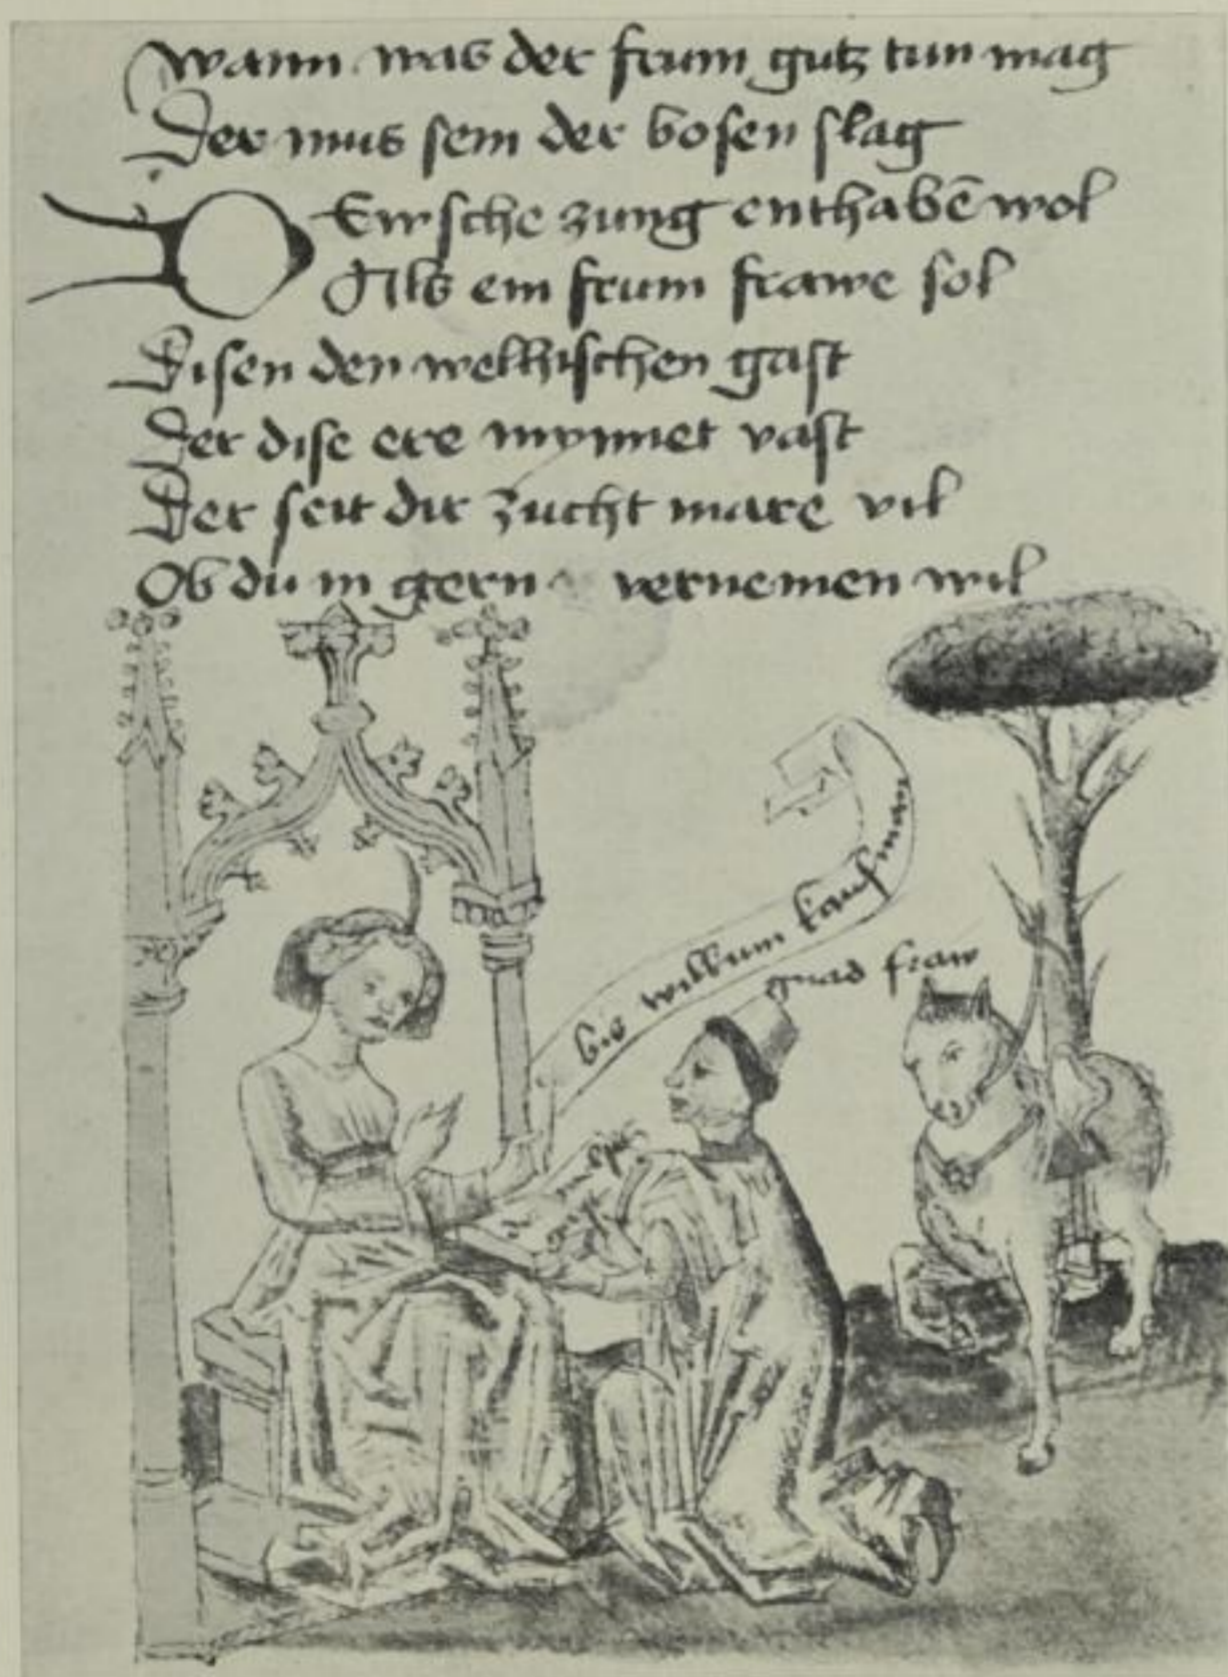 Wann was der frum gutz tun mag
Der mus sein der bosen slag
DEwsche zung enthabē wol
Als ein frum frawe sol
Disen den welhischen gast
Der dise ere mynnet vast
Der seit dir zucht mare vil
Ob du in gern vernemen wil
bis willkum kaufman
gnad fraw